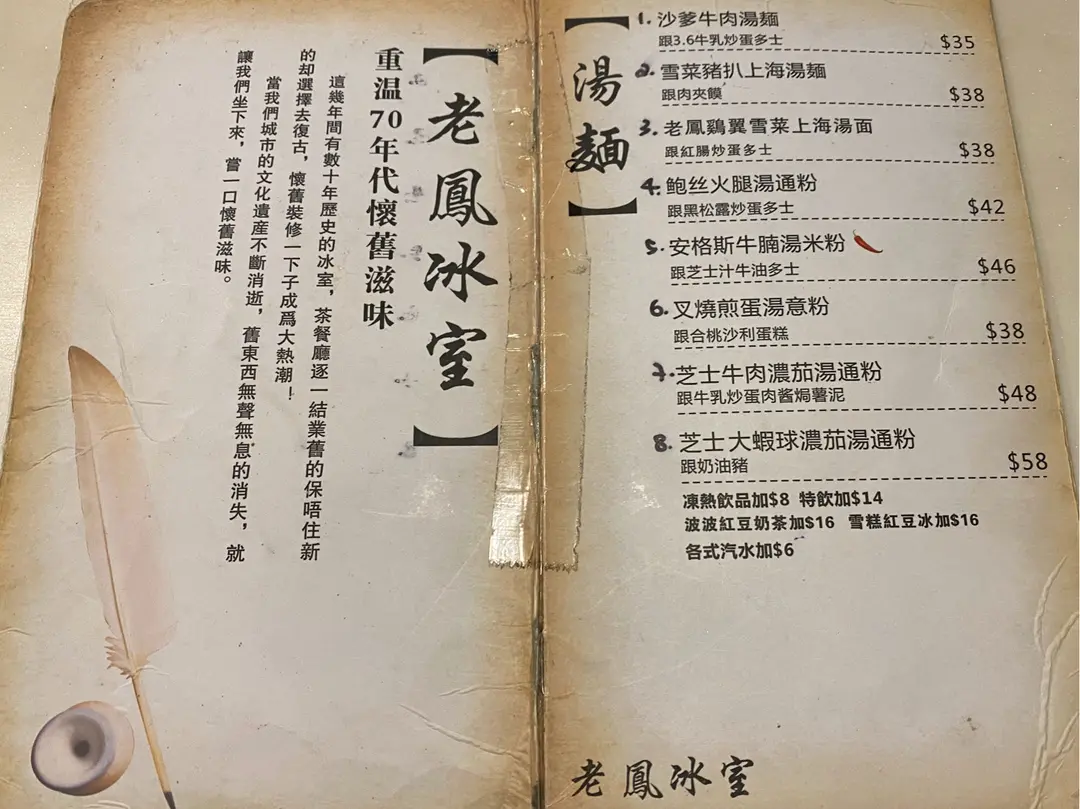 【老鳳冰室】
重温70年代懷舊滋味
這幾年間有數十年歷史的冰室，茶餐廳逐一結業舊的保唔住新
的却選擇去復古，懷舊裝修一下子成爲大熱潮！
當我們城市的文化遺産不斷消逝，舊東西無聲無息的消失，就
讓我們坐下來，嘗一口懷舊滋味。
【湯麵】
1. 沙爹牛肉湯麵
跟3.6牛乳炒蛋多士 $35
2. 雪菜豬扒上海湯麵
跟肉夾饃 $38
3. 老鳳鷄翼雪菜上海湯面
跟紅腸炒蛋多士 $38
4. 鮑丝火腿湯通粉
跟黑松露炒蛋多士 $42
5. 安格斯牛腩湯米粉
跟芝士汁牛油多士 $46
6. 叉燒煎蛋湯意粉
跟合桃沙利蛋糕 $38
7. 芝士牛肉濃茄湯通粉
跟牛乳炒蛋肉酱焗薯泥 $48
8. 芝士大蝦球濃茄湯通粉
跟奶油豬 $58
凍熱飲品加$8 特飲加$14
波波紅豆奶茶加$16 雪糕紅豆冰加$16
各式汽水加$6
老鳳冰室